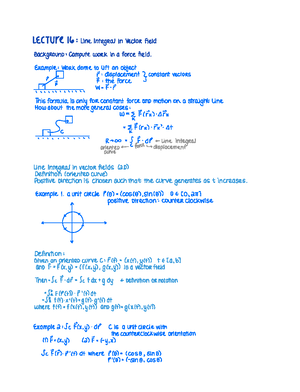 LECTURE 16: Line Integral in Vector Field
Background: Compute work in a force field.
Example: Work done to lift an object
P: displacement } constant vectors
F: the force
W = F · P
This formula is only for constant force and motion on a straight line
How about the more general cases:
Line Integral in vector fields (2D)
Definition (oriented curve)
Positive direction is chosen such that the curve generates as t increases.
Example 1. a unit circle P(θ) = (cos(θ), sin(θ)) θ ∈ [0, 2π]
positive direction: counter clockwise
Definition:
Given an oriented curve C: P(t) = (x(t), y(t)) t ∈ [a, b]
and F = F(x,y) = (f(x,y), g(x,y)) is a vector field
Then ∫c F · dP = ∫c f dx + g dy ← definition or notation
where f(t) = f(x(t), y(t)) and g(t) = g(x(t), y(t))
Example 2: ∫c F(x,y) · dP C is a unit circle with
the counterclockwise orientation
(1) F = (x,y) (2) F = (-y,x)
∫c F(P) · P'(t) dt where P(θ) = (cos θ, sin θ)
P'(θ) = (-sin θ, cos θ)